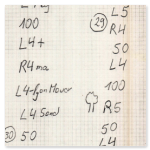 100
L4+
R4 ma
L4
L4 Sand
30 50
L5
29 R4
50
L4
100
R5
50
L4